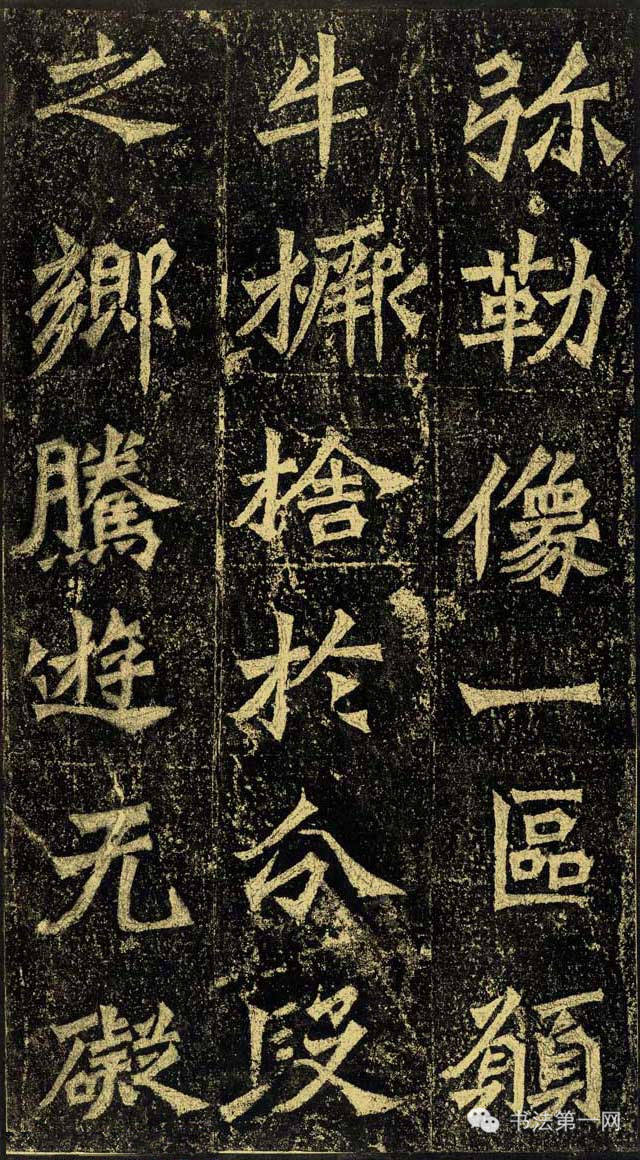 弥勒像一區願
牛橛捨於分段
之鄉騰遊无礙
书法第一网